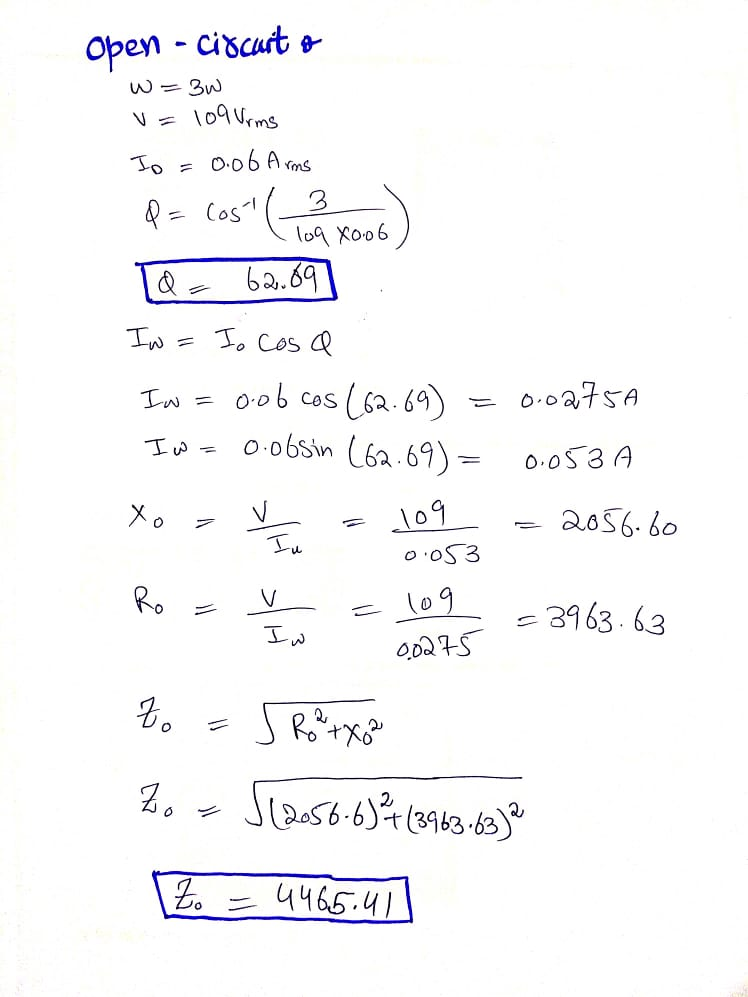 Open - circuit :-
W = 3W
V = 109 Vrms
Io = 0.06 A rms
Q = Cos⁻¹ ( 3 / 109 X0.06 )
Q = 62.69
Iw = Io Cos Q
Iw = 0.06 cos (62.69) = 0.0275A
Iw = 0.06sin (62.69) = 0.053 A
Xo = V / Iu = 109 / 0.053 = 2056.60
Ro = V / Iw = 109 / 0.0275 = 3963.63
Zo = √(Ro² + Xo²)
Zo = √((2056.6)² + (3963.63)²)
Zo = 4465.41